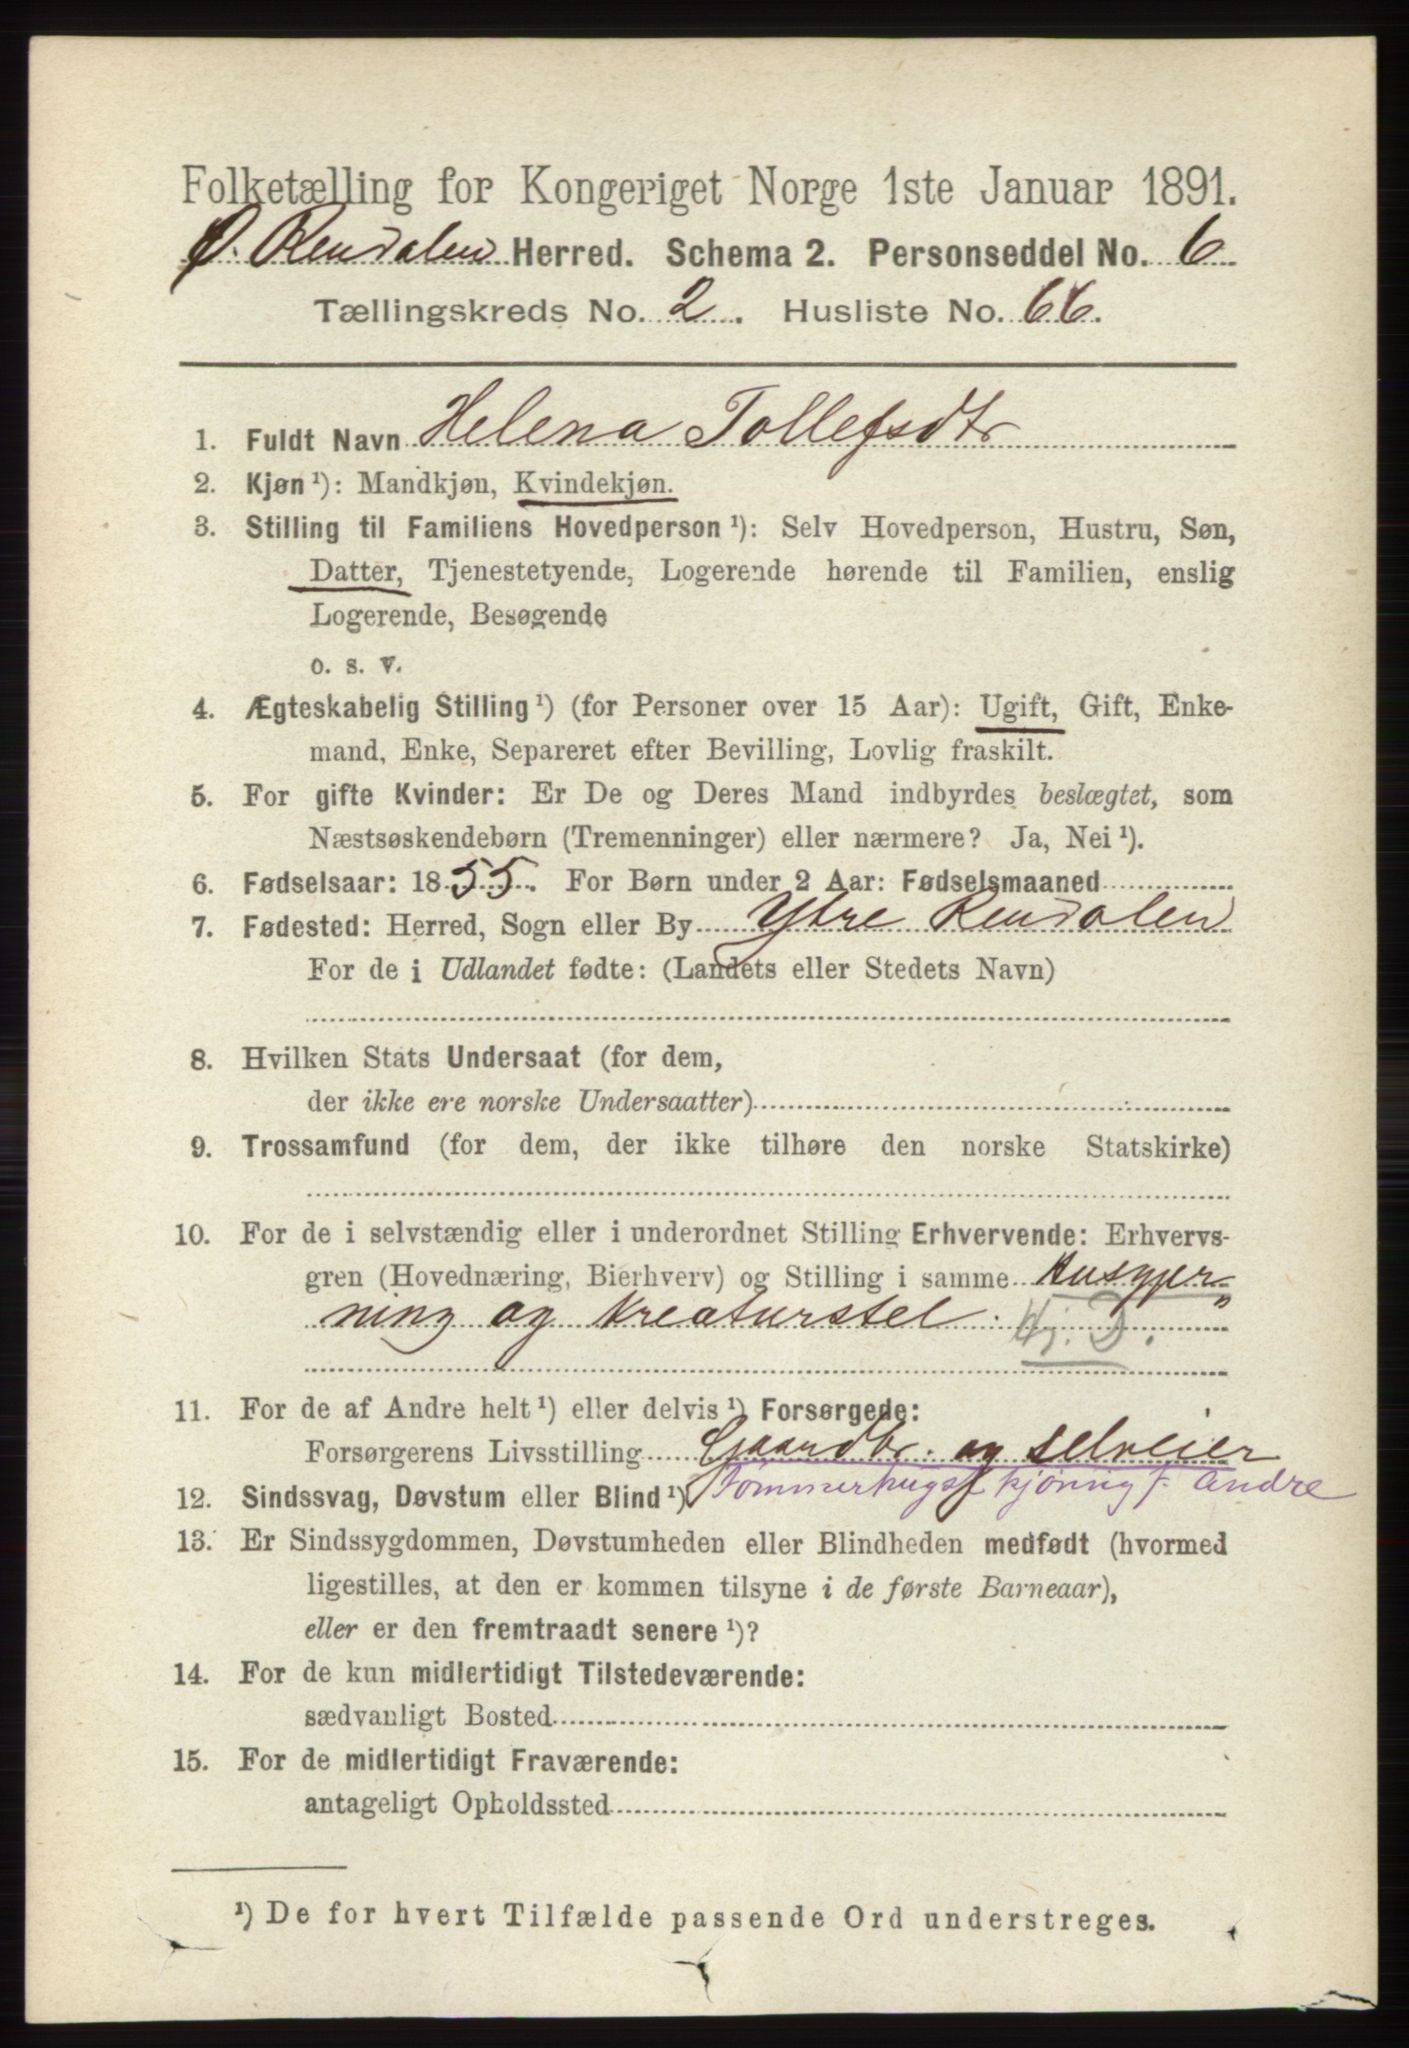 Folketælling for Kongeriget Norge 1ste Januar 1891.
Ø. Rendalen Herred. Schema 2. Personseddel No. 6
Tællingskreds No. 2. Husliste No. 66.
1. Fuldt Navn Helena Tollefsdtr
2. Kjøn ¹): Mandkjøn, Kvindekjøn.
3. Stilling til Familiens Hovedperson ¹): Selv Hovedperson, Hustru, Søn,
Datter, Tjenestetyende, Logerende hørende til Familien, enslig
Logerende, Besøgende
o. s. v.
4. Ægteskabelig Stilling ¹) (for Personer over 15 Aar): Ugift, Gift, Enke-
mand, Enke, Separeret efter Bevilling, Lovlig fraskilt.
5. For gifte Kvinder: Er De og Deres Mand indbyrdes beslægtet, som
Næstsøskendebørn (Tremenninger) eller nærmere? Ja, Nei ¹).
6. Fødselsaar: 1855. For Børn under 2 Aar: Fødselsmaaned
7. Fødested: Herred, Sogn eller By Ytre Rendalen
For de i Udlandet fødte: (Landets eller Stedets Navn)
8. Hvilken Stats Undersaat (for dem,
der ikke ere norske Undersaatter)
9. Trossamfund (for dem, der ikke tilhøre den norske Statskirke)
10. For de i selvstændig eller i underordnet Stilling Erhvervende: Erhvervs-
gren (Hovednæring, Bierhverv) og Stilling i samme Husgjer"
ning og Kreaturstel. Hj. D.
11. For de af Andre helt ¹) eller delvis ¹) Forsørgede:
Forsørgerens Livsstilling Gaardbr. og selveier
12. Sindssvag, Døvstum eller Blind ¹) Tømmerhugst kjøring f. Andre
13. Er Sindssygdommen, Døvstumheden eller Blindheden medfødt (hvormed
ligestilles, at den er kommen tilsyne i de første Barneaar),
eller er den fremtraadt senere ¹)?
14. For de kun midlertidigt Tilstedeværende:
sædvanligt Bosted
15. For de midlertidigt Fraværende:
antageligt Opholdssted
¹) De for hvert Tilfælde passende Ord understreges.